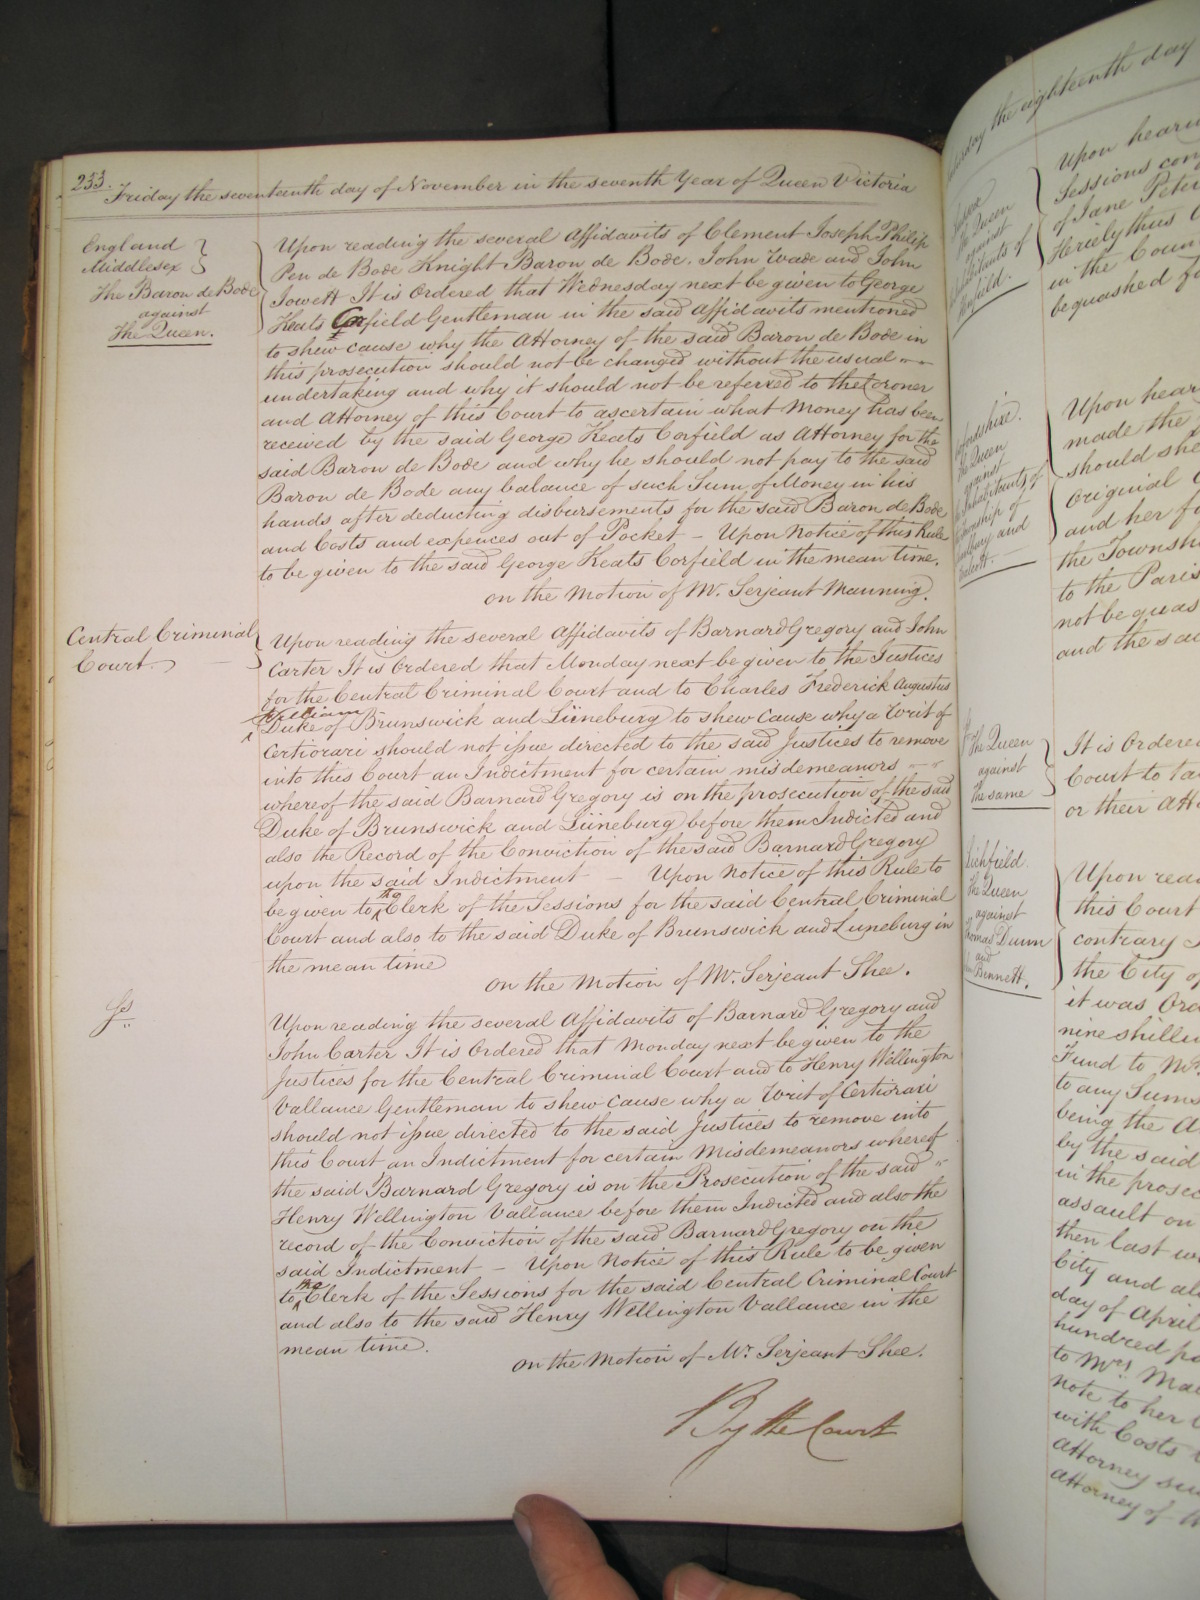 233.
Friday the seventeenth day of November in the seventh Year of Queen Victoria
England
Middlesex
The Baron de Bode
against
The Queen.
Upon reading the several Affidavits of Clement Joseph Philip
Pen de Bode Knight Baron de Bode, John Wade and John
Jowett It is Ordered that Wednesday next be given to George
Keats Corfield Gentleman in the said Affidavits mentioned
to shew cause why the Attorney of the said Baron de Bode in
this prosecution should not be changed without the usual
undertaking and why it should not be referred to the Coroner
and Attorney of this Court to ascertain what Money has been
received by the said George Keats Corfield as Attorney for the
said Baron de Bode and why he should not pay to the said
Baron de Bode any balance of such Sum of Money in his
hands after deducting disbursements for the said Baron de Bode
and Costs and expences out of Pocket – Upon Notice of this Rule
to be given to the said George Keats Corfield in the mean time.
on the Motion of Mr. Serjeant Manning.
Central Criminal
Court
Upon reading the several Affidavits of Barnard Gregory and John
Carter It is Ordered that Monday next be given to the Justices
for the Central Criminal Court and to Charles Frederick Augustus
William
Duke of Brunswick and Lüneburg to shew cause why a Writ of
Certiorari should not issue directed to the said Justices to remove
into this Court an Indictment for certain misdemeanors
whereof the said Barnard Gregory is on the prosecution of the said
Duke of Brunswick and Lüneburg before them Indicted and
also the Record of the Conviction of the said Barnard Gregory
upon the said Indictment – Upon Notice of this Rule to
be given to the Clerk of the Sessions for the said Central Criminal
Court and also to the said Duke of Brunswick and Luneburg in
the mean time
on the Motion of Mr. Serjeant Shee.
Upon reading the several Affidavits of Barnard Gregory and
John Carter It is Ordered that Monday next be given to the
Justices for the Central Criminal Court and to Henry Wellington
Vallance Gentleman to shew cause why a Writ of Certiorari
should not issue directed to the said Justices to remove into
this Court an Indictment for certain Misdemeanors whereof
the said Barnard Gregory is on the Prosecution of the said
Henry Wellington Vallance before them Indicted and also the
record of the Conviction of the said Barnard Gregory on the
said Indictment – Upon Notice of this Rule to be given
to the Clerk of the Sessions for the said Central Criminal Court
and also to the said Henry Wellington Vallance in the
mean time.
on the Motion of Mr. Serjeant Shee.
By the Court
the eighteenth day
The Queen
against
Upon hearin
Sessions con
of Jane Peter
in the Coun
be quashed fo
the Queen
against
Inhabitants of
Township of
and
Upon hear
made the
should she
Original
and her fo
the Townsh
to the Paris
not be quas
and the sai
The Queen
against
the same
It is Ordere
Court to ta
or their Att
Lichfield
the Queen
against
Thomas Dunn
and
Bennett.
Upon rea
this Court
contrary
the City of
it was Ord
nine shillin
Fund to Mr.
to any Sums
being the A
by the said
in the prosec
assault on
then last w
City and al
day of April
hundred po
to Mrs. Ma
note to her
with Costs
Attorney su
Attorney of